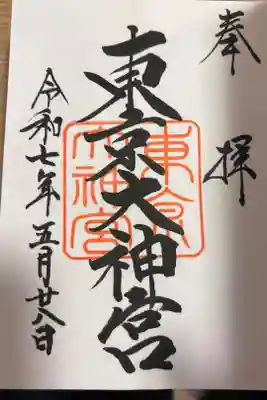 奉拝
東京大神宮
東京大神宮
令和七年五月廿八日